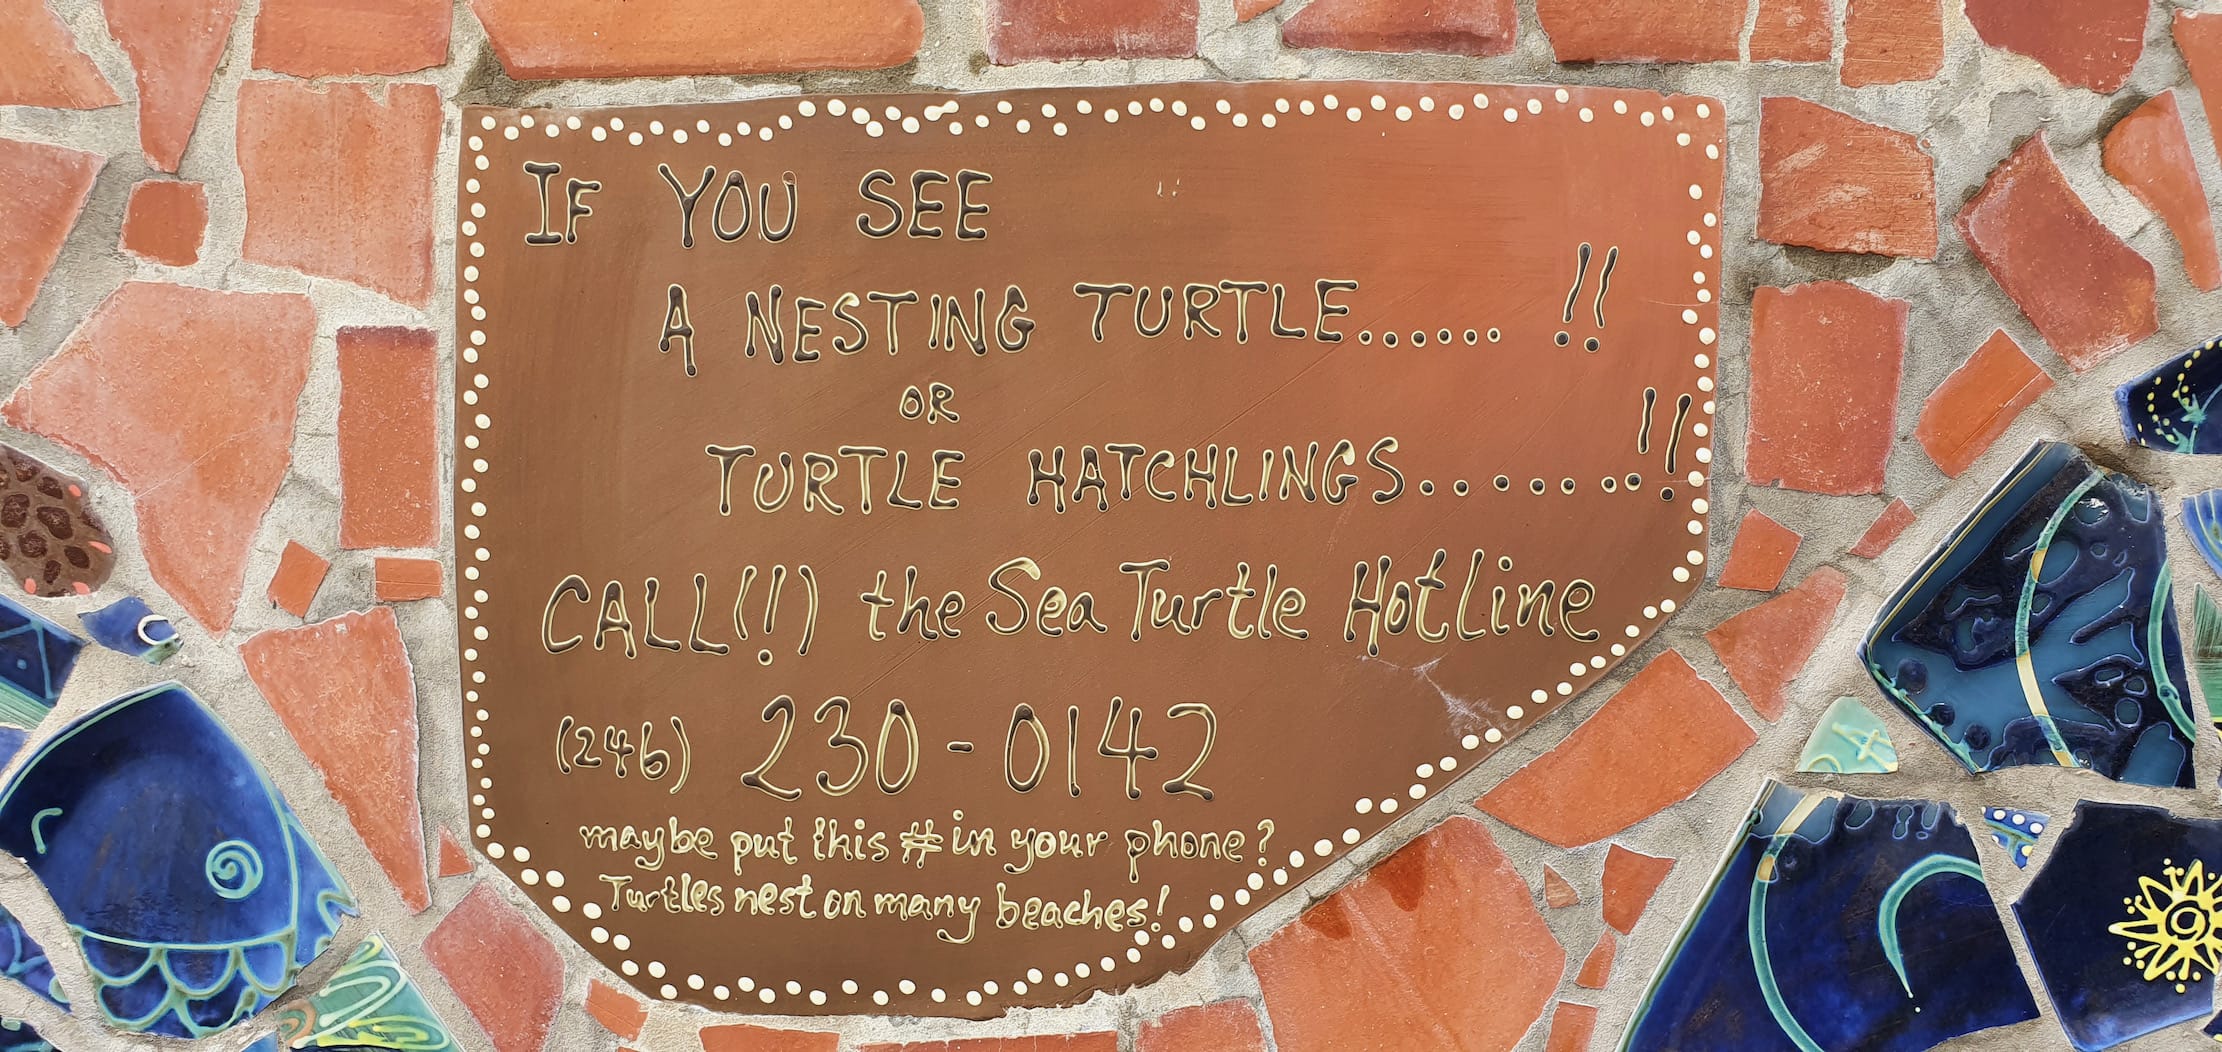 IF YOU SEE
A NESTING TURTLE...... !!
OR
TURTLE HATCHLINGS.......!!
CALL(!!) the Sea Turtle HotLine
(246) 230-0142
maybe put this # in your phone?
Turtles nest on many beaches!